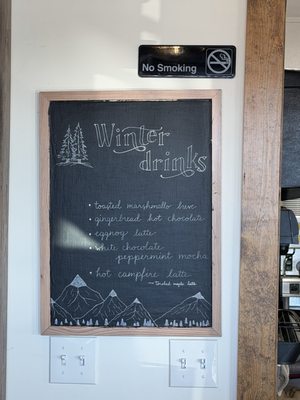 No Smoking
Winter
drinks
• toasted marshmallow brew
• gingerbread hot chocolate
• eggnog latte
• white chocolate
peppermint mocha
• hot campfire latte
toasted maple latte